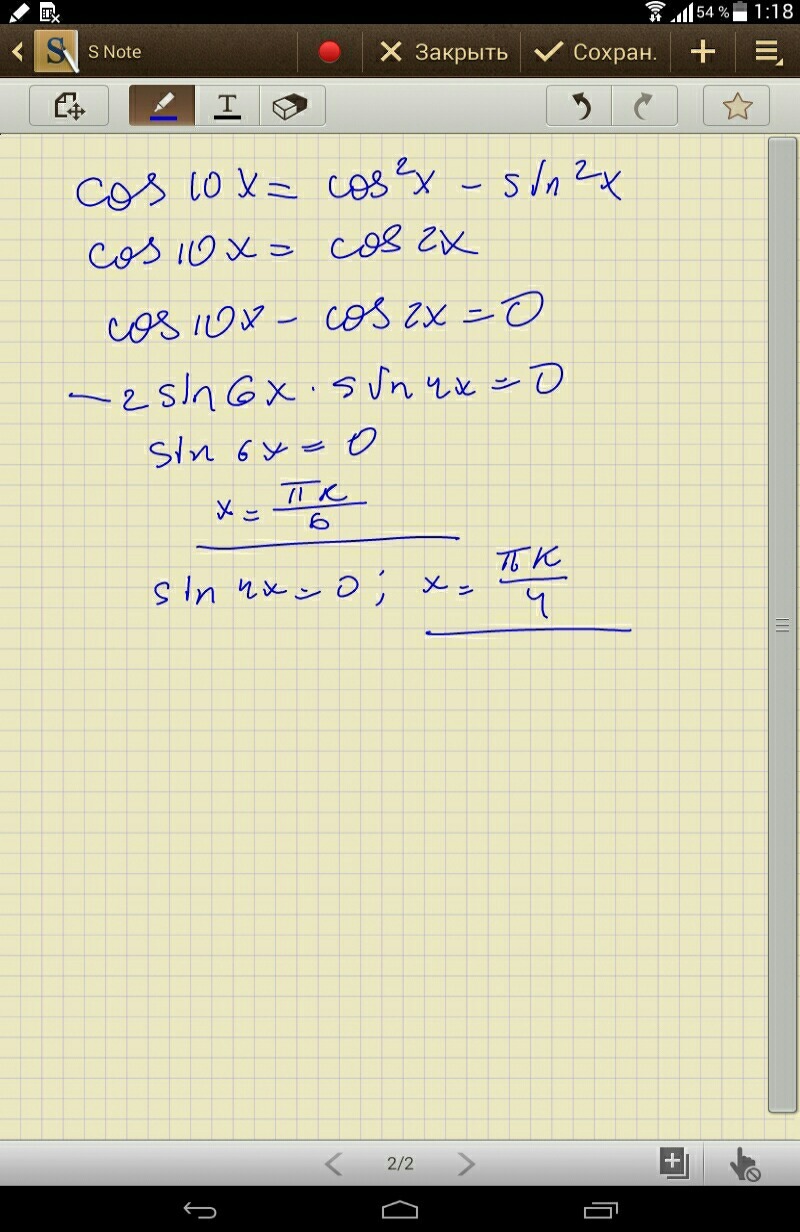 54 % 1:18
S Note Закрыть Сохран.
T
cos 10x = cos²x - sin²x
cos 10x = cos 2x
cos 10x - cos 2x = 0
-2 sin 6x · sin 4x = 0
sin 6x = 0
x = πк/6
sin 4x = 0; x = πк/4
2/2